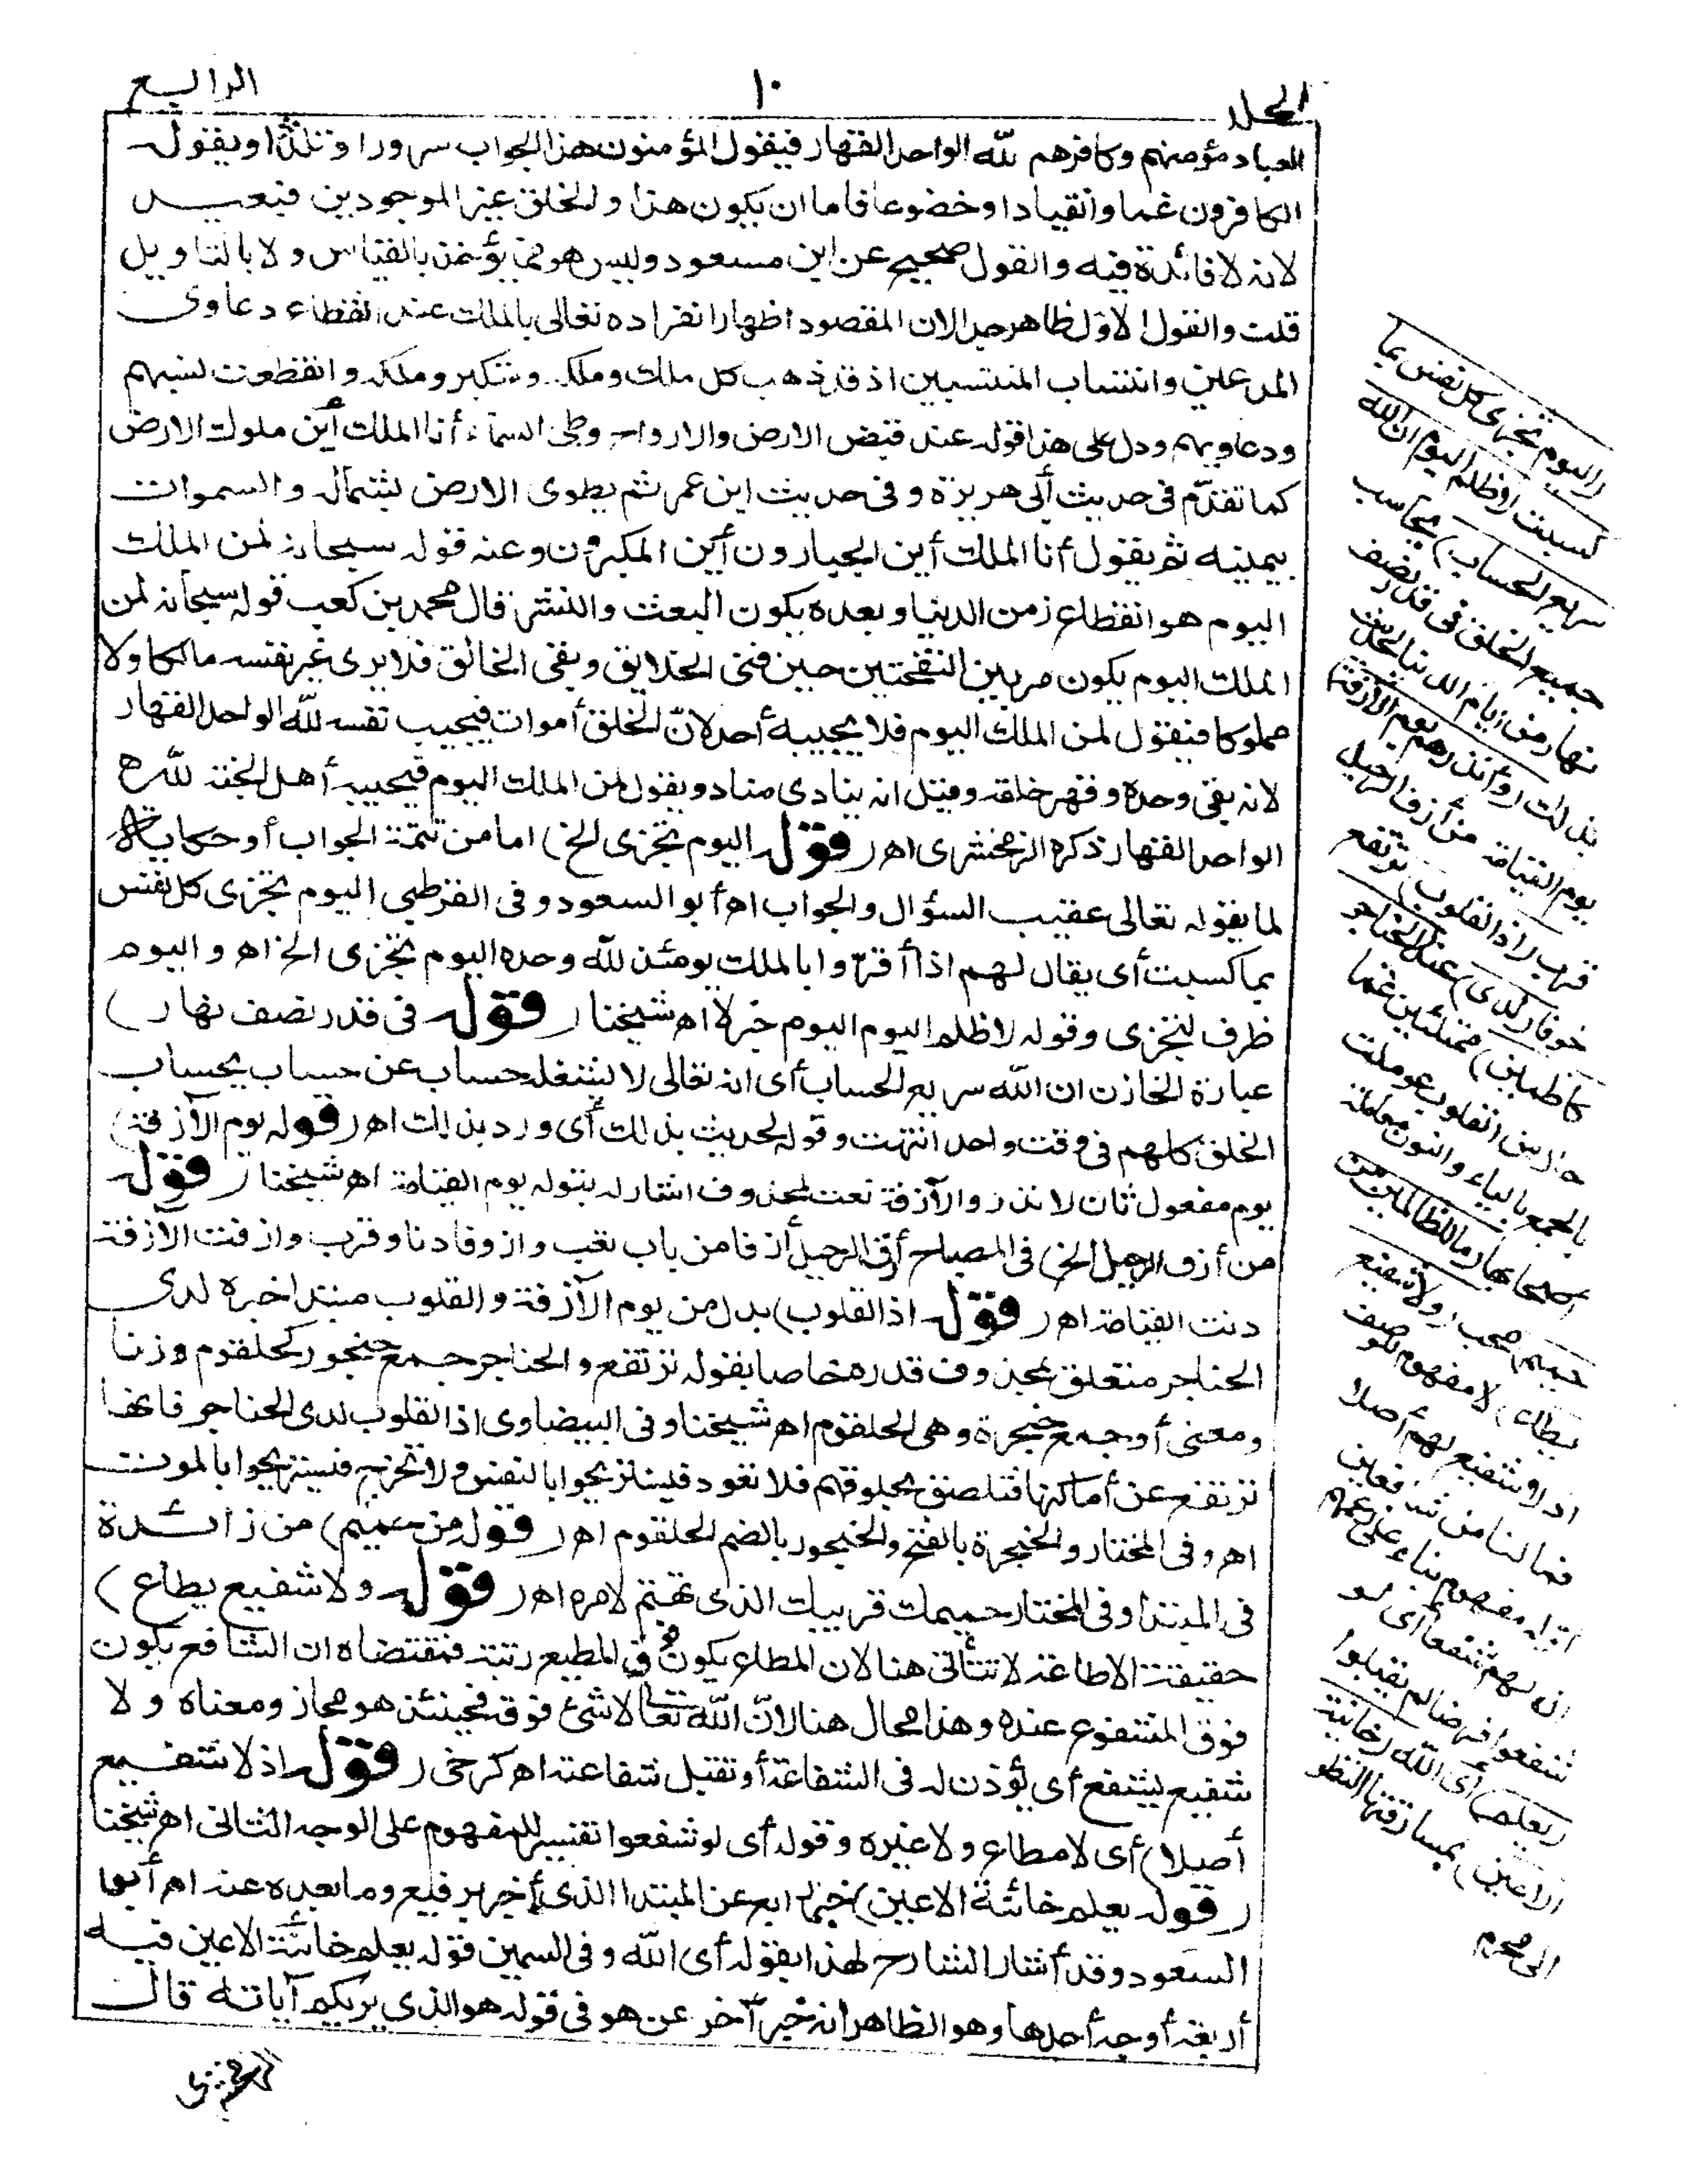 المجلد
١٠
الرابع
العباد مؤمنهم وكافرهم لله الواحد القهار فيقول المؤمنون هذا الجواب سرورا وتلذذا ويقول
الكافرون غما وانقيادا وخضوعا فاما ان يكون هذا والخلق غير الموجودين فبعيد
لانه لا فائدة فيه والقول صحيح عن ابن مسعود وليس هو مما يؤخذ بالقياس ولا بالتاويل
قلت والقول الاول ظاهر جدا لان المقصود اظهار انفراده تعالى بالملك عند انقطاع دعاوى
المدعين وانتساب المنتسبين اذ قد ذهب كل ملك وملكه ومتكبر وملكه وانقطعت نسبهم
ودعاويهم ودل على هذا قوله عند قبض الارض والارواح وطى السماء أنا الملك أين ملوك الارض
كما تقدّم فى حديث أبى هريرة وفى حديث ابن عمر ثم يطوى الارض بشماله والسموات
بيمينه ثم يقول أنا الملك أين الجبارون أين المتكبرون وعنه قوله سبحانه لمن الملك
اليوم هو انقطاع زمن الدنيا وبعده يكون البعث والنشر قال محمد بن كعب قوله سبحانه لمن
الملك اليوم يكون مربين النفختين حين فنى الخلايق وبقى الخالق فلا يرى غير نفسه مالكا ولا
مملوكا فيقول لمن الملك اليوم فلا يجيبه أحد لانّ الخلق أموات فيجيب نفسه لله الواحد القهار
لانه بقى وحده وقهر خلقه وقيل انه ينادى مناد ويقول لمن الملك اليوم فيجيبه أهل الجنة لله
الواحد القهار ذكره الزمخشرى اه (قوله اليوم تجزى الخ) اما من تتمة الجواب أو حكاية
لما يقوله تعالى عقيب السؤال والجواب اه أبو السعود وفى القرطبى اليوم تجزى كل نفس
بما كسبت أى يقال لهم اذا أقرّوا بالملك يومئذ لله وحده اليوم تجزى الخ اه واليوم
ظرف لتجزى وقوله لا ظلم اليوم اليوم خبر لا اه شيخنا (قوله فى قدر نصف نهار)
عبارة الخازن ان الله سريع الحساب أى انه تعالى لا يشغله حساب عن حساب يحاسب
الخلق كلهم فى وقت واحد انتهت وقوله لحديث بذلك أى ورد بذلك اه (قوله يوم الآزفة)
يوم مفعول ثان لانذر والآزفة نعت لمحذوف اشار له بقوله يوم القيامة اه شيخنا (قوله
من أزف الرحيل الخ) فى المصباح أزف الرحيل أزفا من باب تعب وازوفا دنا وقرب وازفت الآزفة
دنت القيامة اه (قوله اذ القلوب) بدل من يوم الآزفة والقلوب مبتدا خبره لدى
الحناجر متعلق بمحذوف قدره خاصا بقوله ترتفع والحناجر جمع حنجور كحلقوم وزنا
ومعنى أو جمع حنجرة وهى الحلقوم اه شيخنا وفى البيضاوى اذ القلوب لدى الحناجر فانها
ترتفع عن أماكنها فتلصق بحلوقهم فلا تعود فيتروّحوا بالتنفس ولا تخرج فيستريحوا بالموت
اه وفى المختار والحنجرة بالفتح والحنجور بالضم الحلقوم اه (قوله من حميم) من زائدة
فى المبتدا وفى المختار حميمك قريبك الذى تهتم لامره اه (قوله ولا شفيع يطاع)
حقيقة الاطاعة لا تتأتى هنا لان المطاع يكون فوق المطيع رتبة فمقتضاه ان الشافع يكون
فوق المشفوع عنده وهذا محال هنا لانّ الله تعالى لا شئ فوقه فحينئذ هو مجاز ومعناه ولا
شفيع يشفع أى يؤذن له فى الشفاعة أو تقبل شفاعته اه كرخى (قوله اذ لا شفيع
أصلا) أى لا مطاع ولا غيره وقوله أى لو شفعوا تفسير للمفهوم على الوجه الثانى اه شيخنا
(قوله يعلم خائنة الاعين) خبر رابع عن المبتدا الذى أخبر برفيع وما بعده عنه اه أبو
السعود وقد أشار الشارح لهذا بقوله أى الله وفى السمين قوله يعلم خائنة الاعين فيه
أربعة أوجه أحدها وهو الظاهر انه خبر آخر عن هو فى قوله هو الذى يريكم آياته قال
الزمخشرى
(اليوم تجزى كل نفس بما
كسبت لا ظلم اليوم ان الله
سريع الحساب) يحاسب
جميع الخلق فى قدر نصف
نهار من ايام الدنيا لحديث
بذلك (وأنذرهم يوم الآزفة)
يوم القيامة من أزف الرحيل
قرب (اذ القلوب) ترتفع
خوفا (لدى) عند (الحناجر
كاظمين) ممتلئين غما
حال من القلوب عوملت
بالجمع بالياء والنون معاملة
اصحابها (ما للظالمين من
حميم) محب (ولا شفيع
يطاع) لا مفهوم للوصف
اذ لا شفيع لهم أصلا
فما لنا من شافعين
أو له مفهوم بناء على زعمهم
ان لهم شفعاء أى لو
شفعوا فرضا لم يقبلوا
(يعلم) أى الله (خائنة
الاعين) بمسارقتها النظر
الى محرم